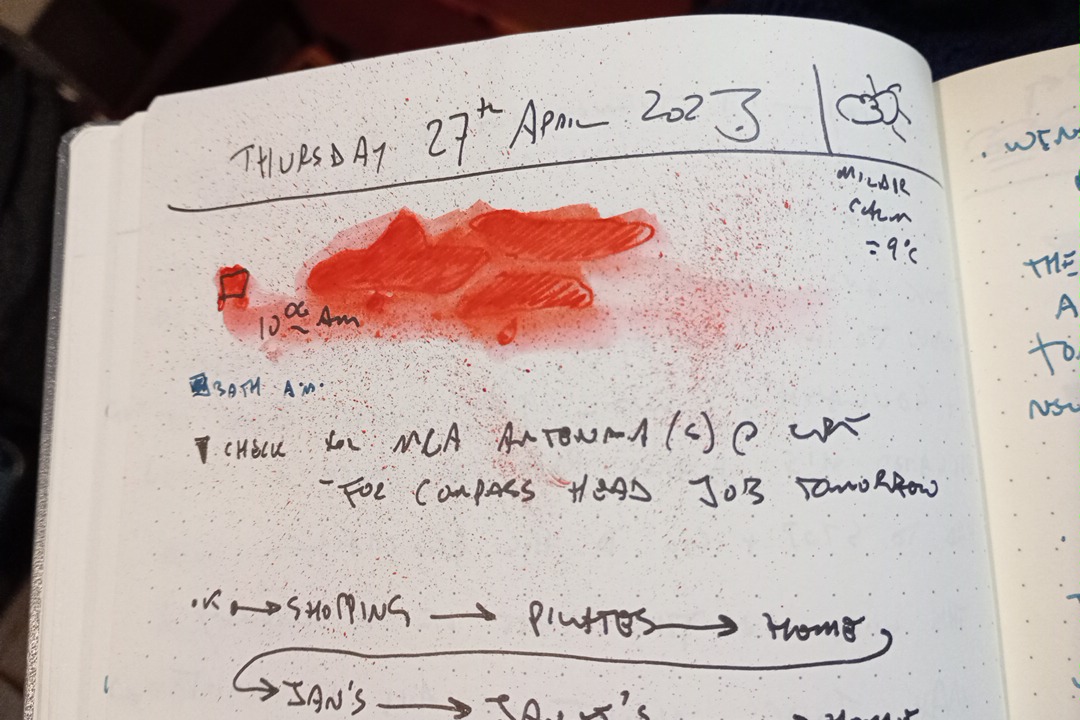 THURSDAY 27th APRIL 2023
MILAIR
CALM
=9°C
10 06 AM
BATH A.M.
CHECK for MCA ANTENNA(S) @
- FOR COMPASS HEAD JOB TOMORROW
.K → SHOPPING → PILATES → HOME
→ JAN'S → JANET'S → HOME
. WENT
THE
A
TO